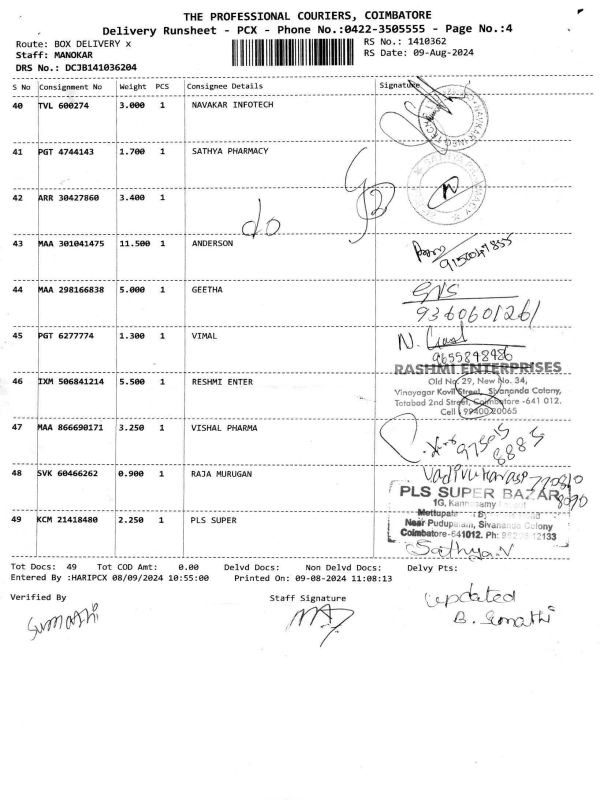 THE PROFESSIONAL COURIERS, COIMBATORE
Delivery Runsheet - PCX - Phone No.:0422-3505555 - Page No.:4
Route: BOX DELIVERY x
RS No.: 1410362
Staff: MANOKAR
RS Date: 09-Aug-2024
DRS No.: DCJB141036204
S No Consignment No Weight PCS Consignee Details Signature
40 TVL 600274 3.000 1 NAVAKAR INFOTECH
41 PGT 4744143 1.700 1 SATHYA PHARMACY
42 ARR 30427860 3.400 1
do
43 MAA 301041475 11.500 1 ANDERSON
44 MAA 298166838 5.000 1 GEETHA
9360601261
45 PGT 6277774 1.300 1 VIMAL
9655898486
RASHMI ENTERPRISES
46 IXM 506841214 5.500 1 RESHMI ENTER
Old No. 29, New No. 34,
Vinayagar Kovil Street, Sivananda Colony,
Tatabad 2nd Street, Coimbatore -641 012.
Cell : 99400 20065
47 MAA 866690171 3.250 1 VISHAL PHARMA
975015
8885
48 SVK 60466262 0.900 1 RAJA MURUGAN
PLS SUPER BAZAR
49 KCM 21418480 2.250 1 PLS SUPER
Near Pudupalam, Sivananda Colony
Coimbatore-641012. Ph:
Sathya.V
Tot Docs: 49 Tot COD Amt: 0.00 Delvd Docs: Non Delvd Docs: Delvy Pts:
Entered By :HARIPCX 08/09/2024 10:55:00 Printed On: 09-08-2024 11:08:13
Verified By Staff Signature
updated
B. Sumathi
Sumathi